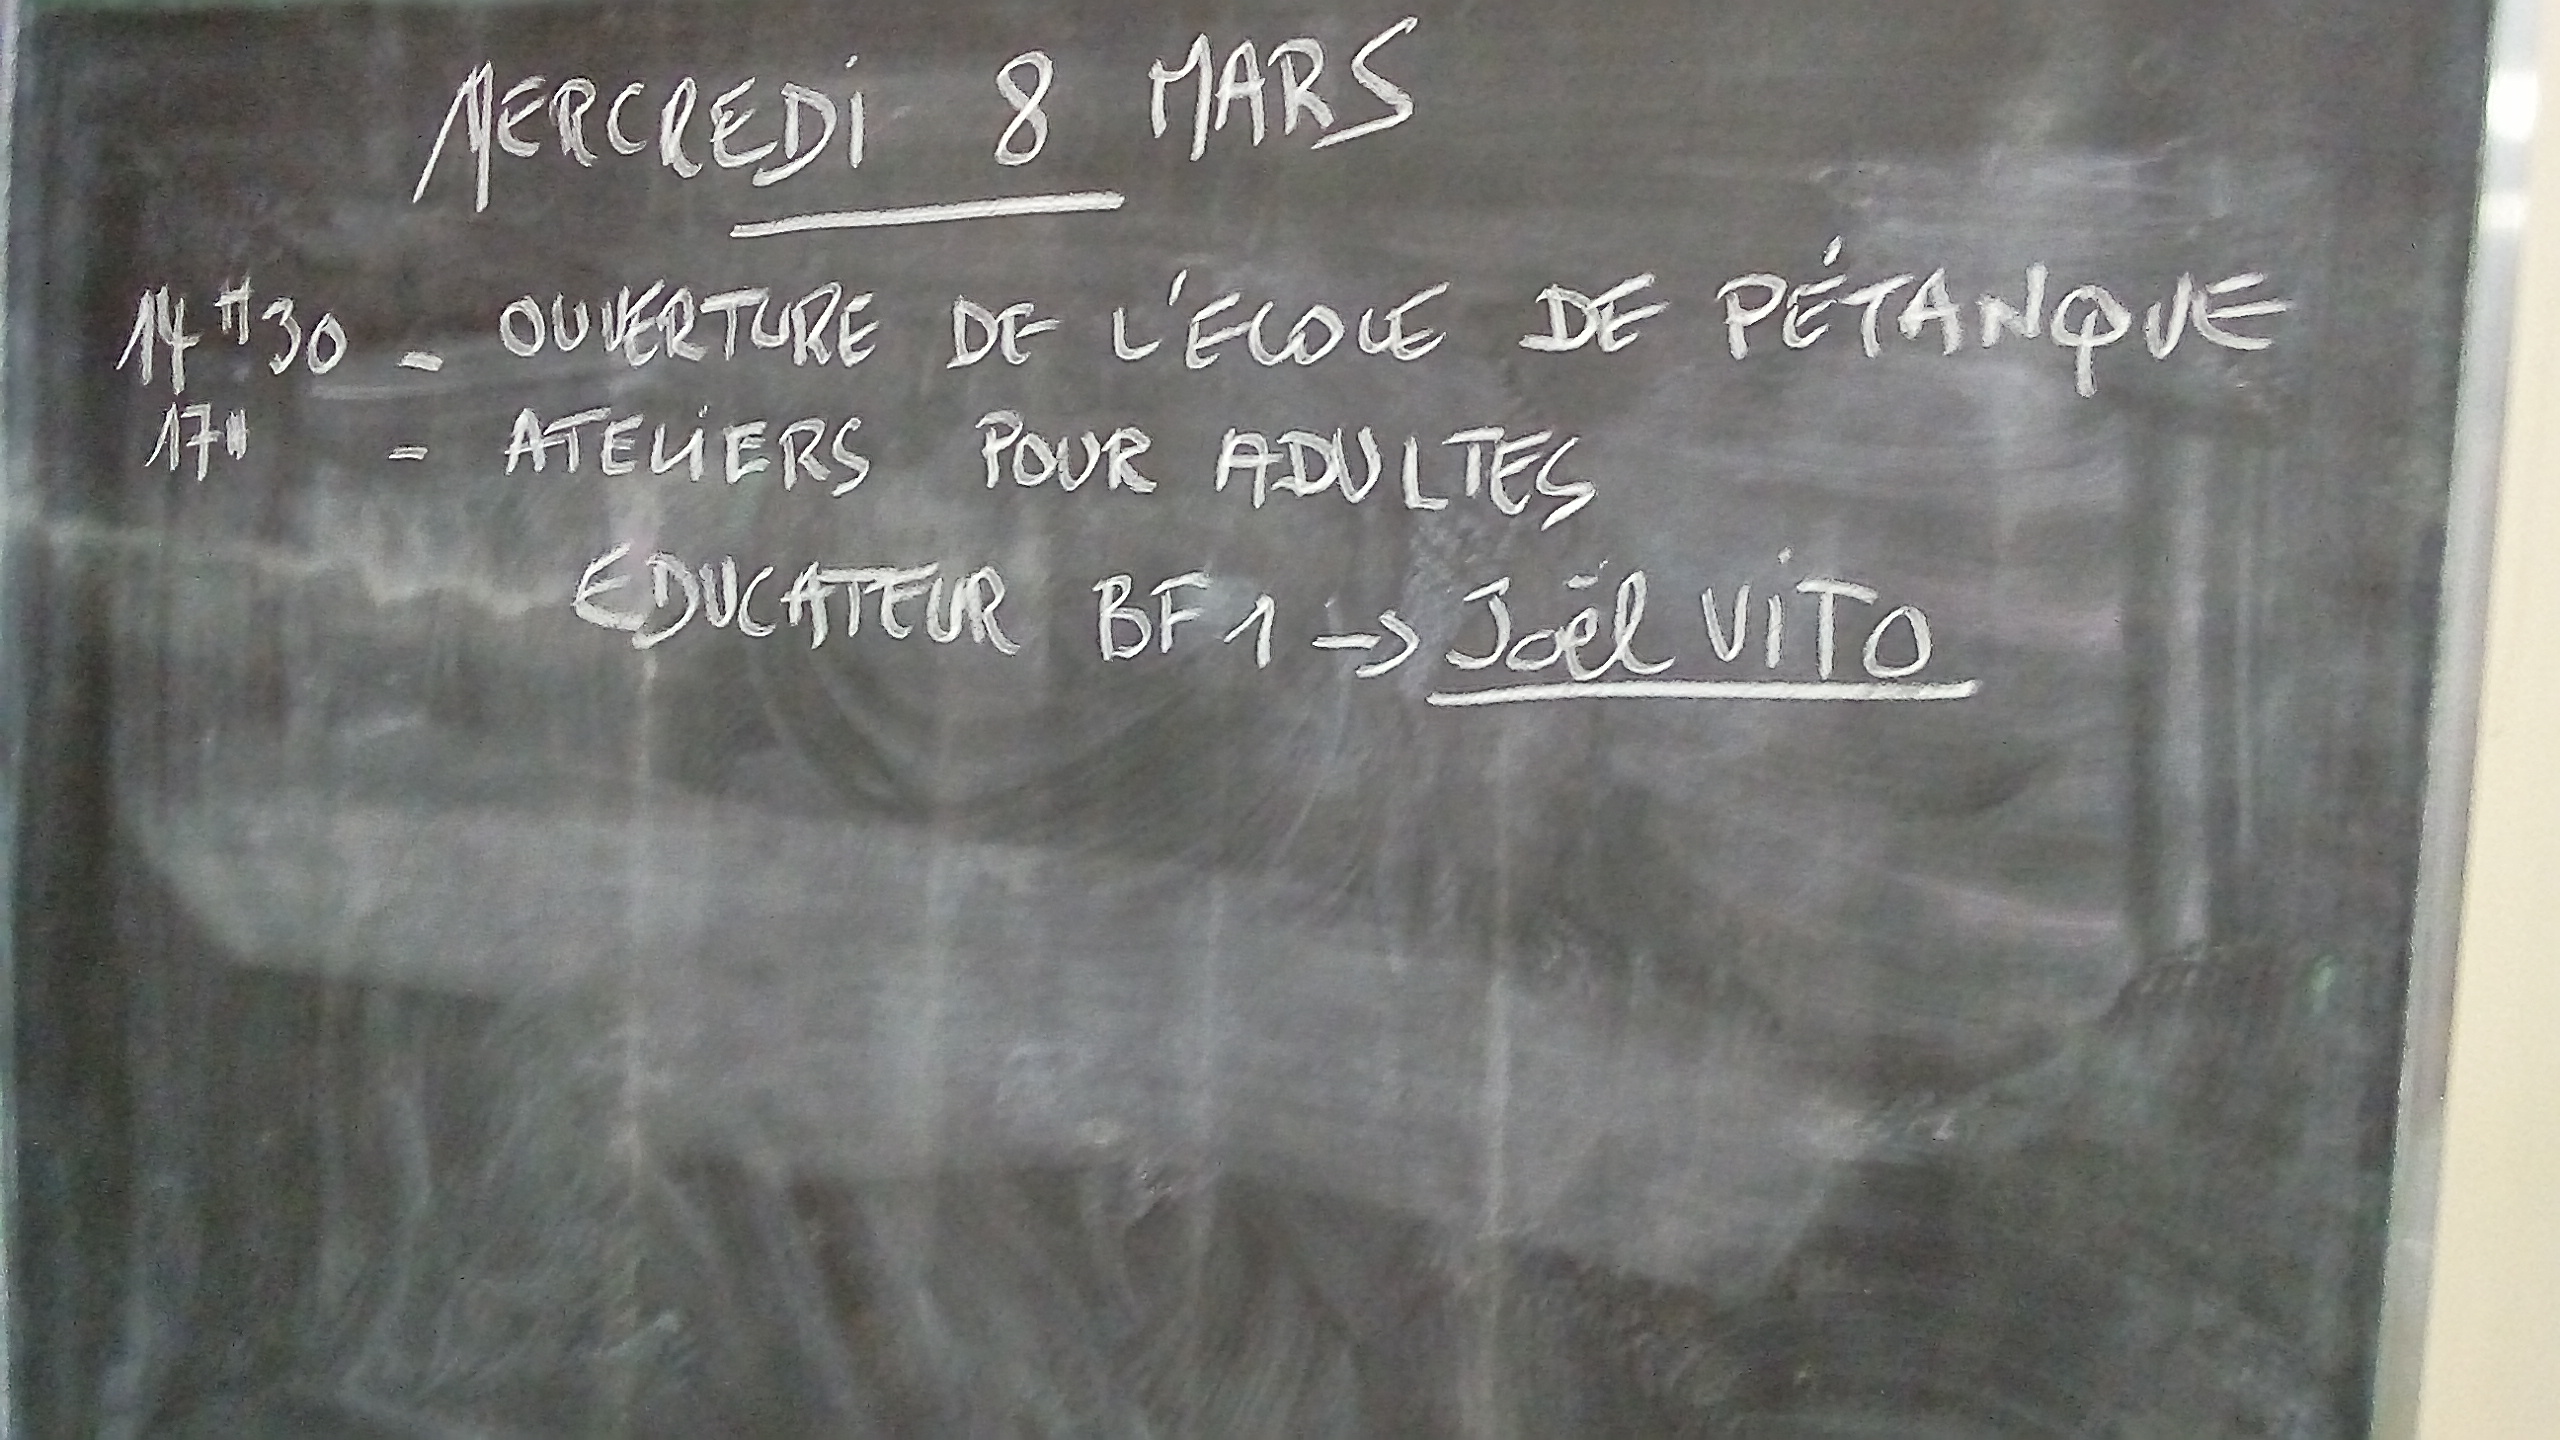 MERCREDI 8 MARS
14H30 - OUVERTURE DE L'ECOLE DE PÉTANQUE
17H - ATELIERS POUR ADULTES
EDUCATEUR BF1 → Joël VITO